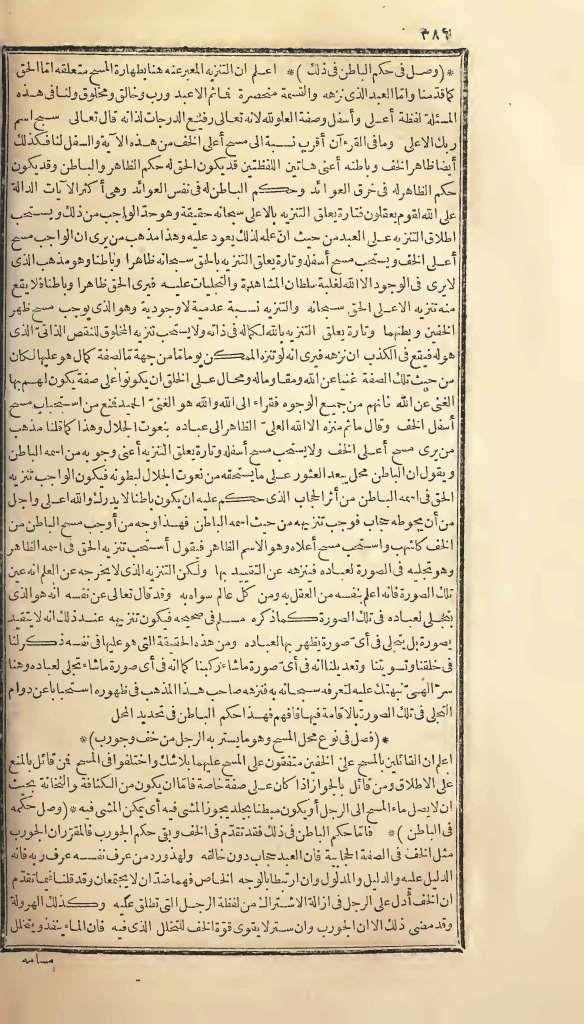 ٣٨٩
*(وصل في حكم الباطن في ذلك)* اعلم ان التنزيه المعبر عنه هنا بطهارة المسح متعلقه اما الحق
كما قدمنا واما العبد الذي نزهه والقسمة منحصرة فما ثم الا عبد ورب وخالق ومخلوق ولنا في هذه
المسئلة لفظة أعلى وأسفل وصفة العلو لله لانه تعالى رفيع الدرجات لذاته قال تعالى سبح اسم
ربك الاعلى وما في القرءآن أقرب نسبة الى مسح أعلى الخف من هذه الآية والسفل لنا فكذلك
أيضا ظاهر الخف وباطنه أعنى هاتين اللفظتين قد يكون الحق له حكم الظاهر والباطن وقد يكون
حكم الظاهر له في خرق العوائد وحكم الباطن له في نفس العوائد وهى أكثر الآيات الدالة
على الله لقوم يعقلون فتارة يعلق التنزيه بالاعلى سبحانه حقيقة وهو حد الواجب من ذلك ويستحب
اطلاق التنزيه على العبد من حيث ان عمله لذلك يعود عليه وهذا مذهب من يرى ان الواجب مسح
أعلى الخف ويستحب مسح أسفله وتارة يعلق التنزيه بالحق سبحانه ظاهرا وباطنا وهو مذهب الذى
لا يرى في الوجود الا الله لغلبة سلطان المشاهدة والتجليات عليه فيرى الحق ظاهرا وباطنا فلا يقع
منه تنزيه الا على الحق سبحانه والتنزيه نسبة عدمية لا وجودية وهو الذى يوجب مسح ظهر
الخفين وبطنهما وتارة يعلق التنزيه بالله لكماله في ذاته ولا يستحب تنزيه المخلوق للنقص الذاتى الذى
هو له فيقع في الكذب ان نزهه فيرى انه لو تنزه الممكن يوما ما من جهة ما لصفة كمال هو عليها لكان
من حيث تلك الصفة غنيا عن الله ومقاوما له ومحال على الخلق ان يكونوا على صفة يكون لهم بها
الغنى عن الله فانهم من جميع الوجوه فقراء الى الله والله هو الغنى الحميد فمنع من استحباب مسح
أسفل الخف وقال ما ثم منزه الا الله العلى الظاهر الى عباده بنعوت الجلال وهذا كما قلنا مذهب
من يرى مسح أعلى الخف ولا يستحب مسح أسفله وتارة يعلق التنزيه أعنى وجوبه من اسمه الباطن
ويقول ان الباطن محل يبعد العثور على ما يستحقه من نعوت الجلال لبطونه فيكون الواجب تنزيه
الحق في اسمه الباطن من أثر الحجاب الذى حكم عليه ان يكون باطنا لا يدرك والله اعلى واجل
من أن يحوطه حجاب فوجب تنزيهه من حيث اسمه الباطن فهذا وجه من أوجب مسح الباطن من
الخف كاشهب واستحب مسح أعلاه وهو الاسم الظاهر فيقول أستحب تنزيه الحق في اسمه الظاهر
وهو تجليه في الصورة لعباده فينزهه عن التقييد بها ولكن التنزيه الذى لا يخرجه عن العلم انه عين
تلك الصورة فانه اعلم بنفسه من العقل به ومن كل عالم سواه به وقد قال تعالى عن نفسه انه هو الذى
يتجلى لعباده في تلك الصورة كما ذكره مسلم في صحيحه فيكون تنزيهه عند ذلك انه لا يتقيد
بصورة بل يتجلى في أى صورة يظهر بها لعباده ومن هذه الحقيقة التى هو عليها في نفسه ذكر لنا
في خلقنا وتسويتنا وتعديلنا انه في أى صورة ما شاء ركبنا كما انه في أى صورة ما شاء تجلى لعباده وهنا
سر الهى نبهتك عليه لتعرفه سبحانه به فنزهه صاحب هذا المذهب في ظهوره استحبابا عن دوام
التجلى في تلك الصورة بالاقامة فيها فافهم فهذا حكم الباطن في تحديد المحل
*(فصل في نوع محل المسح وهو ما يستر به الرجل من خف وجورب)*
اعلم ان القائلين بالمسح على الخفين متفقون على المسح عليهما بلا شك واختلفوا في المسح فمن قائل بالمنع
على الاطلاق ومن قائل بالجواز اذا كان على صفة خاصة فاما ان يكون من الكثافة والثخانة بحيث
ان لا يصل ماء المسح الى الرجل أو يكون مبطنا بجلد يجوز المشى فيه أى يمكن المشى فيه *(وصل حكمه
في الباطن)* فاما حكم الباطن في ذلك فقد تقدم في الخف وبقى حكم الجورب فالمقرر ان الجورب
مثل الخف في الصفة الحجابية فان العبد حجاب دون خالقه ولهذا ورد من عرف نفسه عرف ربه فانه
الدليل عليه والدليل والمدلول وان ارتبطا بالوجه الخاص فهما ضدان لا يجتمعان وقد قلنا فيما تقدم
ان الخف أدل على الرجل في ازالة الاشتراك من لفظة الرجل التى تطلق عليه وكذلك الهرولة
وقد مضى ذلك الا ان الجورب وان ستر لا يقوى قوة الخف للتخلل الذى فيه فان الماء ينفذ ويتخلل
مسامه